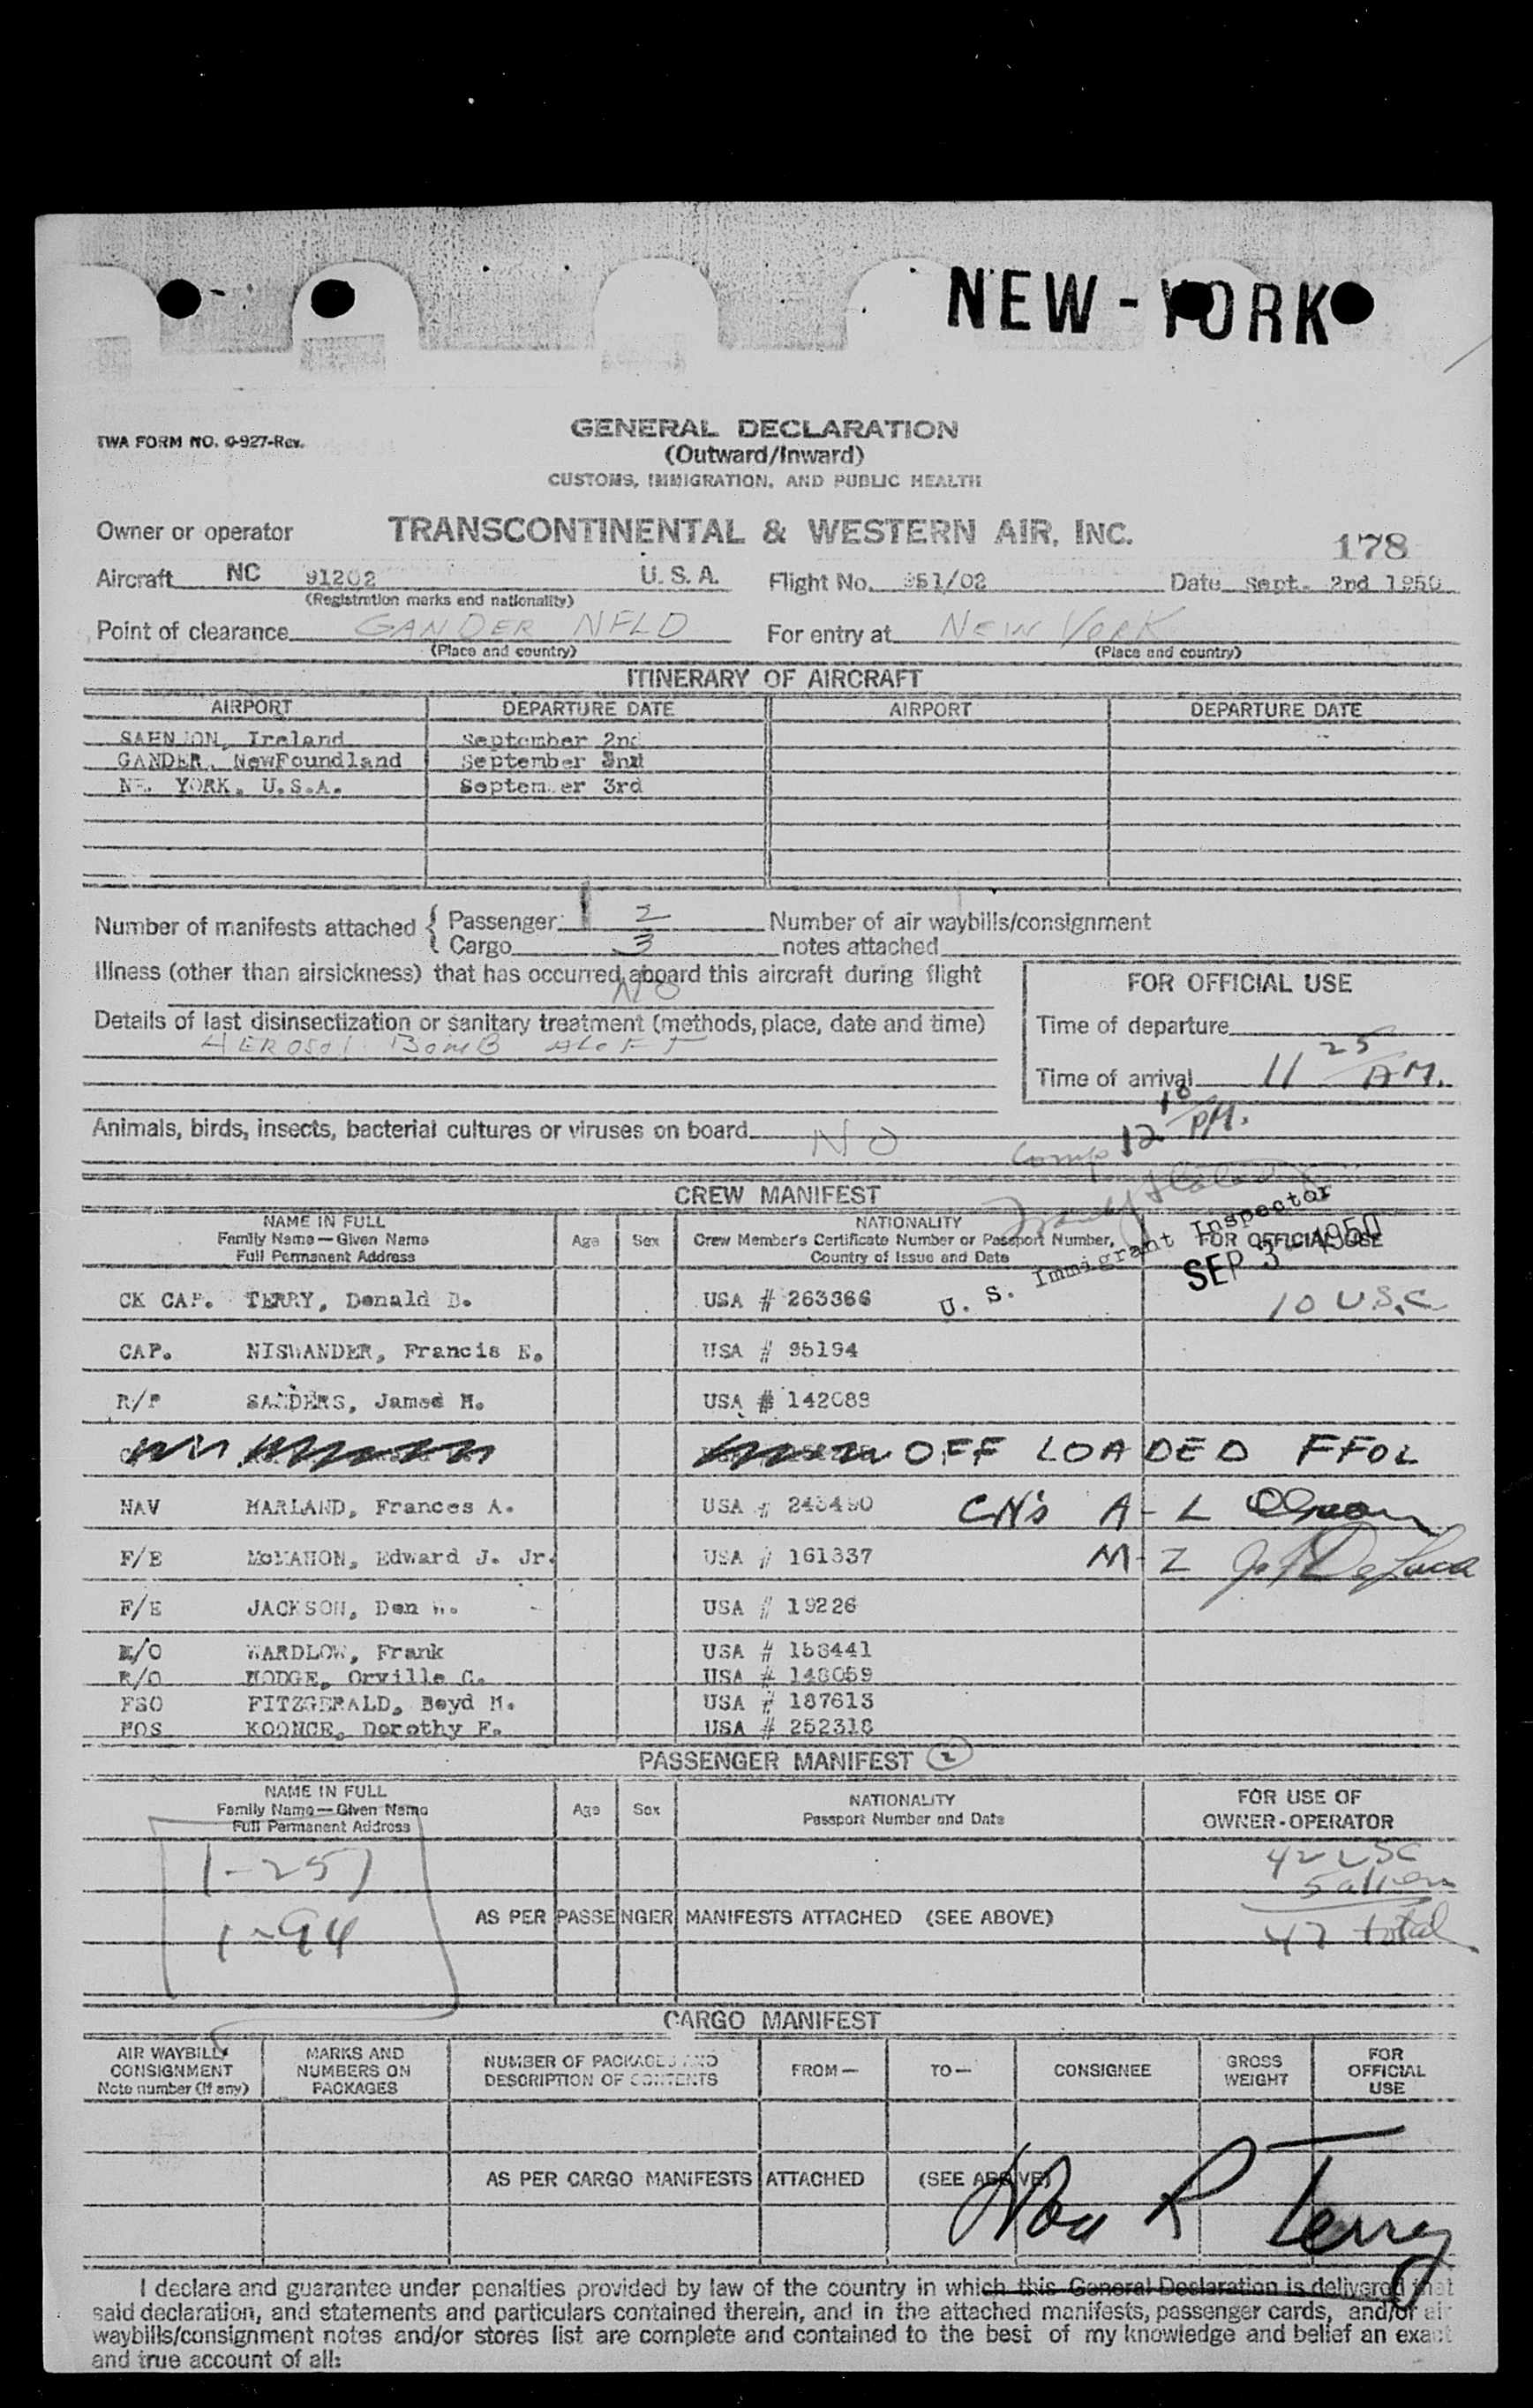 NEW-YORK
TWA FORM NO. 0-927-Rev.
GENERAL DECLARATION
(Outward/Inward)
CUSTOMS, IMMIGRATION, AND PUBLIC HEALTH
Owner or operator TRANSCONTINENTAL & WESTERN AIR, INC.
178
Aircraft NC 91202 U.S.A. Flight No. 951/02 Date Sept. 2nd 1950
(Registration marks and nationality)
Point of clearance GANDER NFLD For entry at NEW YORK
(Place and country) (Place and country)
ITINERARY OF AIRCRAFT
AIRPORT DEPARTURE DATE AIRPORT DEPARTURE DATE
Ireland September 2nd
GANDER, NewFoundland September 2nd
YORK, U.S.A. 3rd
Number of manifests attached { Passenger 2 Number of air waybills/consignment
Cargo 3 notes attached
Illness (other than airsickness) that has occurred aboard this aircraft during flight
NO
FOR OFFICIAL USE
Details of last disinsectization or sanitary treatment (methods, place, date and time)
AEROSOL BOMB ALOFT
Time of departure
Time of arrival 11 25 AM.
Animals, birds, insects, bacterial cultures or viruses on board NO
Comp 12 10 PM.
CREW MANIFEST
NAME IN FULL
Family Name—Given Name
Full Permanent Address
Age Sex
NATIONALITY
Crew Member's Certificate Number or Passport Number,
Country of Issue and Date
FOR OFFICIAL USE
U. S. Immigrant Inspector
SEP 3 - 1950
CK CAP. TERRY, Donald USA # 263366 10 U.S.C.
CAP. NISWANDER, Francis E. USA # 95194
R/P SANDERS, James M. USA # 142089
OFF LOADED FFOL
NAV MARLAND, Frances A. USA # 243490 CN's A-L Olson
F/E McMAHON, Edward J. Jr. USA # 161337 M-Z
F/E JACKSON, Don W. USA # 19226
R/O WARDLOW, Frank USA # 153441
R/O HODGE, Orville C. USA # 148059
FSO FITZGERALD, Boyd M. USA # 187613
HOS KOONCE, Dorothy F. USA # 252318
PASSENGER MANIFEST 2
NAME IN FULL
Family Name—Given Name
Full Permanent Address
Age Sex
NATIONALITY
Passport Number and Date
FOR USE OF
OWNER-OPERATOR
1-257
42 USC
5 alien
1-94
AS PER PASSENGER MANIFESTS ATTACHED (SEE ABOVE)
47 total
CARGO MANIFEST
AIR WAYBILL/
CONSIGNMENT
Note number (if any)
MARKS AND
NUMBERS ON
PACKAGES
NUMBER OF PACKAGES AND
DESCRIPTION OF CONTENTS
FROM—
TO—
CONSIGNEE
GROSS
WEIGHT
FOR
OFFICIAL
USE
AS PER CARGO MANIFESTS ATTACHED (SEE ABOVE)
Terry
I declare and guarantee under penalties provided by law of the country in which this General Declaration is delivered that
said declaration, and statements and particulars contained therein, and in the attached manifests, passenger cards, and/or air
waybills/consignment notes and/or stores list are complete and contained to the best of my knowledge and belief an exact
and true account of all: